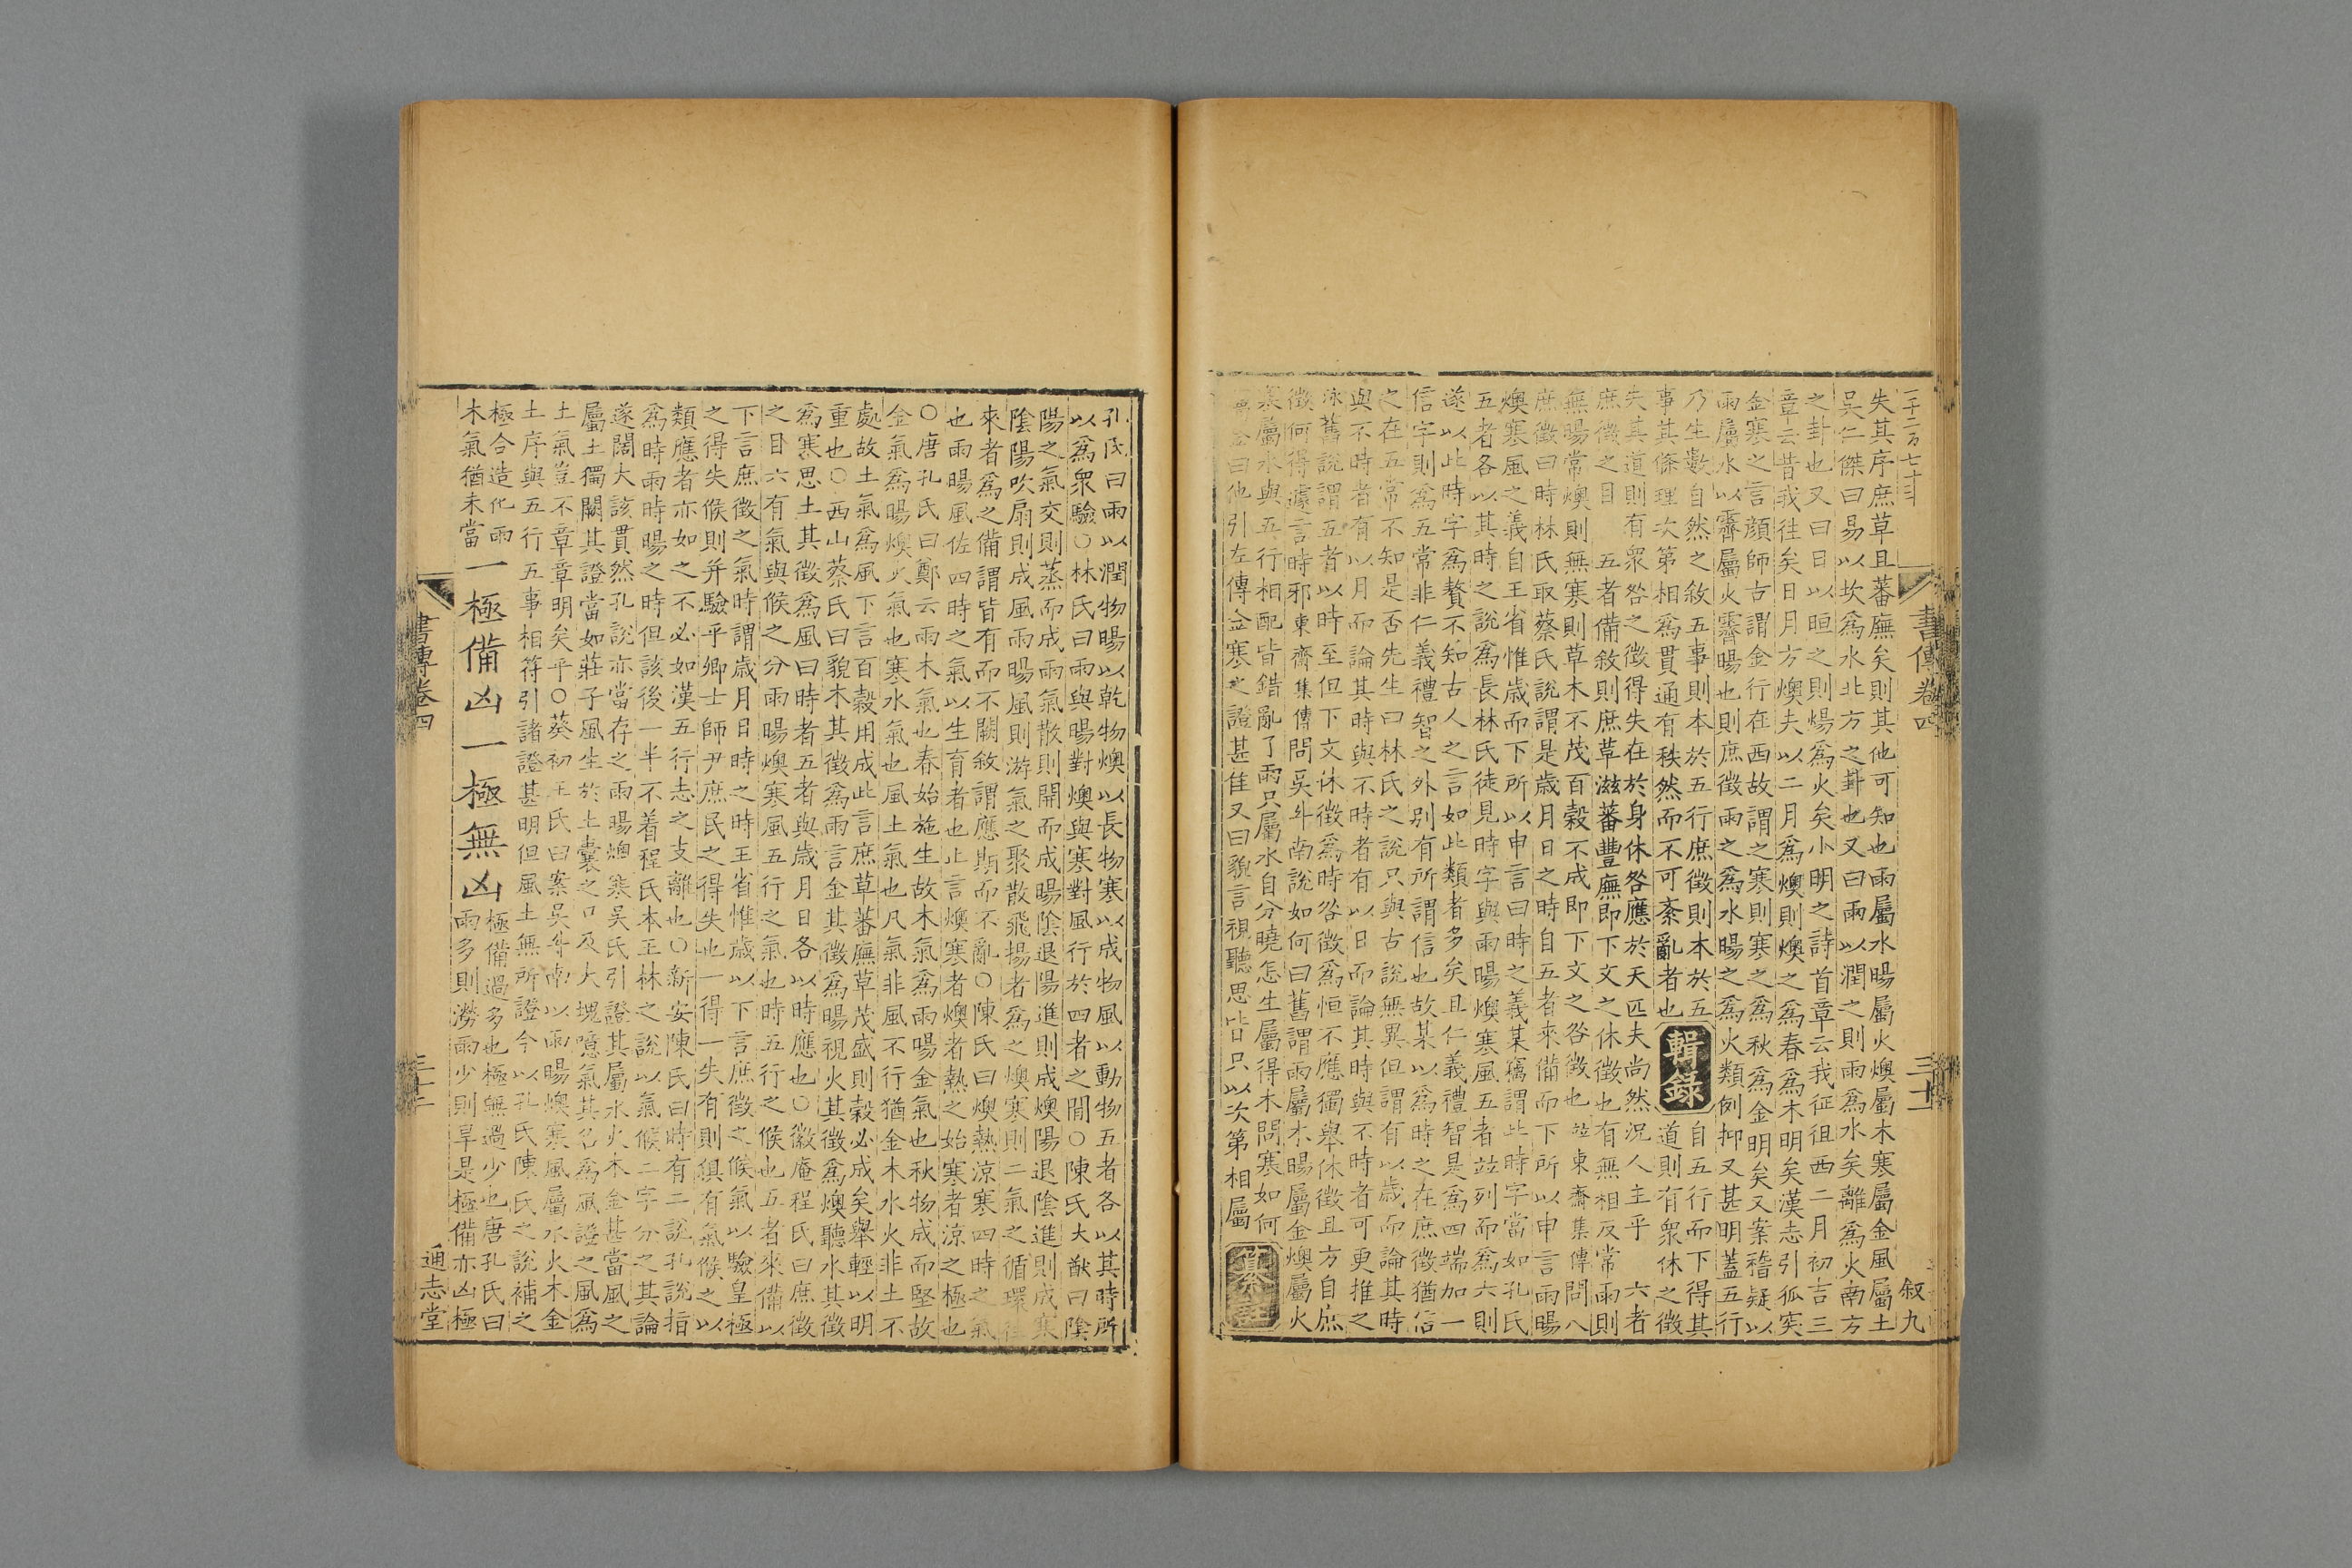 失其序庶草且蕃廡矣則其他可知也雨屬水暘屬火燠屬木寒屬金風屬土
吳仁傑曰易以坎爲水北方之卦也又曰雨以潤之則雨爲水矣離爲火南方
之卦也又曰日以晅之則暘爲火矣小明之詩首章云我征徂西二月初吉三
章云昔我往矣日月方燠夫以二月爲燠則燠之爲春爲木明矣漢志引狐突
金寒之言顔師古謂金行在西故謂之寒則寒之爲秋爲金明矣又案稽疑以
雨屬水以霽屬火霽暘也則庶徵雨之爲水暘之爲火類例抑又甚明蓋五行
乃生數自然之敘五事則本於五行庶徵則本於五
自五行而下得其
事其條理次第相爲貫通有秩然而不可紊亂者也
輯錄
道則有衆休之徵
失其道則有衆咎之徵得失在於身休咎應於天匹夫尚然況人主乎
六者
庶徵之目
五者備敘則庶草滋蕃豐廡即下文之休徵也有無相反常雨則
無暘常燠則無寒則草木不茂百穀不成即下文之咎徵也並東齋集傳問八
庶徵曰時林氏取蔡氏說謂是歲月日之時自五者來備而下所以申言雨暘
燠寒風之義自王省惟歲而下所以申言曰時之義某竊謂此時字當如孔氏
五者各以其時之說爲長林氏徒見時字與雨暘燠寒風五者並列而爲六則
遂以此時字爲贅不知古人之言如此類者多矣且仁義禮智是爲四端加一
信字則爲五常非仁義禮智之外別有所謂信也故某以爲時之在庶徵猶信
之在五常不知是否先生曰林氏之說只與古說無異但謂有以歲而論其時
與不時者有以月而論其時與不時者有以日而論其時與不時者可更推之
詠舊說謂五者以時至但下文休徵爲時咎徵爲恒不應獨舉休徵且方自庶
徵何得遽言時邪東齋集傳問吳斗南說如何曰舊謂雨屬木暘屬金燠屬火
寒屬水與五行相配皆錯亂了雨只屬水自分曉怎生屬得木問寒如何
曰他引左傳金寒之證甚佳又曰貌言視聽思比只以次第相屬
纂註
書傳卷四
三十二
叙九
孔氏曰雨以潤物暘以乾物燠以長物寒以成物風以動物五者各以其時所
以爲衆驗○林氏曰雨與暘對燠與寒對風行於四者之間○陳氏大猷曰陰
陽之氣交則蒸而成雨氣散則開而成暘陰退陽進則成燠陽退陰進則成寒
陰陽吹扇則成風雨暘風則游氣之聚散飛揚者爲之燠寒則二氣之循環往
來者爲之備謂皆有而不闕敘謂應期而不亂○陳氏曰燠熱涼寒四時之氣
也雨暘風佐四時之氣以生育者也止言燠寒者燠者熱之始寒者涼之極也
○唐孔氏曰鄭云雨木氣也春始施生故木氣爲雨暘金氣也秋物成而堅故
金氣爲暘燠火氣也寒水氣也風土氣也凡氣非風不行猶金木水火非土不
處故土氣爲風下言百穀用成此言庶草蕃廡草茂盛則穀必成矣舉輕以明
重也○西山蔡氏曰貌木其徵爲雨言金其徵爲暘視火其徵爲燠聽水其徵
爲寒思土其徵爲風曰時者五者與歲月日各以時應也○徽庵程氏曰庶徵
之目六有氣與候之分雨暘燠寒風五行之氣也時五行之候也五者來備以
下言庶徵之氣時謂歲月日時之時王省惟歲以下言庶徵之候氣以驗皇極
之得失候則并驗乎卿士師尹庶民之得失也一得一失有則俱有氣候之以
類應者亦如之不必如漢五行志之支離也○新安陳氏曰時有二說孔說指
爲時雨時暘之時但該後一半不着程氏本王林之說以氣候二字分之其論
遂闊大該貫然孔說亦當存之雨暘燠寒吳氏引證其屬水火木金甚當風之
屬土獨闕其證當如莊子風生於土囊之口及大塊噫氣其名爲風證之風爲
土氣豈不章章明矣乎○葵初王氏曰案吳斗南以雨暘燠寒風屬水火木金
土序與五行五事相符引諸證甚明但風土無所證今以孔氏陳氏之說補之
極合造化雨
木氣猶未當
一極備凶一極無凶
極備過多也極無過少也唐孔氏曰
雨多則澇雨少則旱是極備亦凶極
書傳卷四
三十二
通志堂